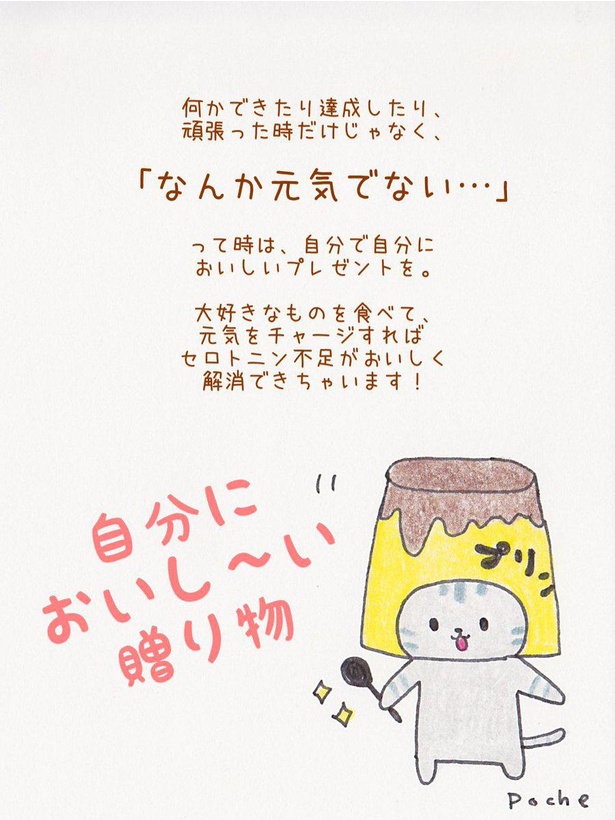 何かできたり達成したり、
頑張った時だけじゃなく、
「なんか元気でない…」
って時は、自分で自分に
おいしいプレゼントを。
大好きなものを食べて、
元気をチャージすれば
セロトニン不足がおいしく
解消できちゃいます！
自分に
おいし〜い
贈り物
プリン
Poche